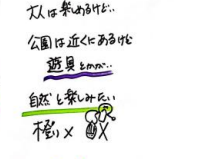 大人は楽しめるけど..
公園は近くにあるけど
遊具とかが...
自然と楽しみたい
×　×